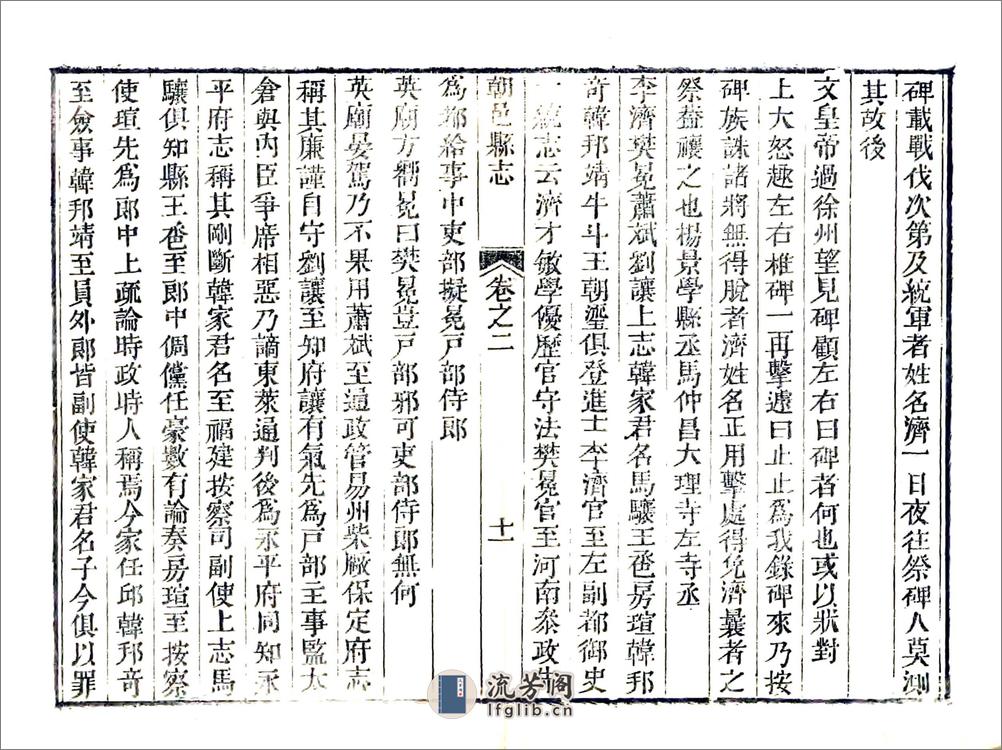 碑載戰伐次第及統軍者姓名濟一日夜往祭碑人莫測
其故後
文皇帝過徐州望見碑顧左右曰碑者何也或以狀對
上大怒趣左右椎碑一再擊遽曰止止爲我錄碑來乃按
碑族誅諸將無得脫者濟姓名正用擊處得免濟曩者之
祭葢禳之也楊景學縣丞馬仲昌大理寺左寺丞
李濟樊冕蕭斌劉讓上志韓家君名馬驥王卺房瑄韓邦
奇韓邦靖牛斗王朝璗俱登進士李濟官至左副都御史
一統志云濟才敏學優歷官守法樊冕官至河南叅政先
朝邑縣志
卷之二
十一
爲都給事中吏部擬冕戸部侍郎
英廟方嚮冕曰樊冕豈戸部邪可吏部侍郎無何
英廟晏駕乃不果用蕭斌至通政管易州柴厰保定府志
稱其廉謹自守劉讓至知府讓有氣先爲戸部主事監太
倉與內臣爭席相惡乃謫東萊通判後爲永平府同知永
平府志稱其剛斷韓家君名至福建按察司副使上志馬
驥俱知縣王卺至郎中倜儻任豪數有論奏房瑄至按察
使瑄先爲郎中上疏論時政時人稱焉今家任邱韓邦奇
至僉事韓邦靖至員外郎皆副使韓家君名子今俱以罪
流芳閣
lfglib.cn